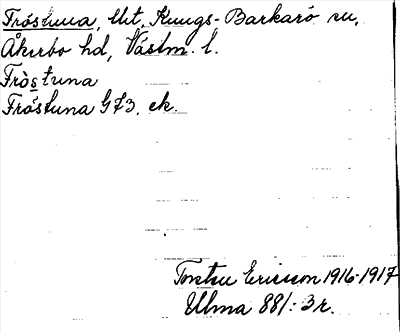 Fröstuna, Ut. Kungs-Barkarö sn,
Åkerbo hd, Västm. l.
Fròstuna
Fröstuna G73. ek.
Torsten Ericsson 1916-1917
Ulma 88/: 3 r.